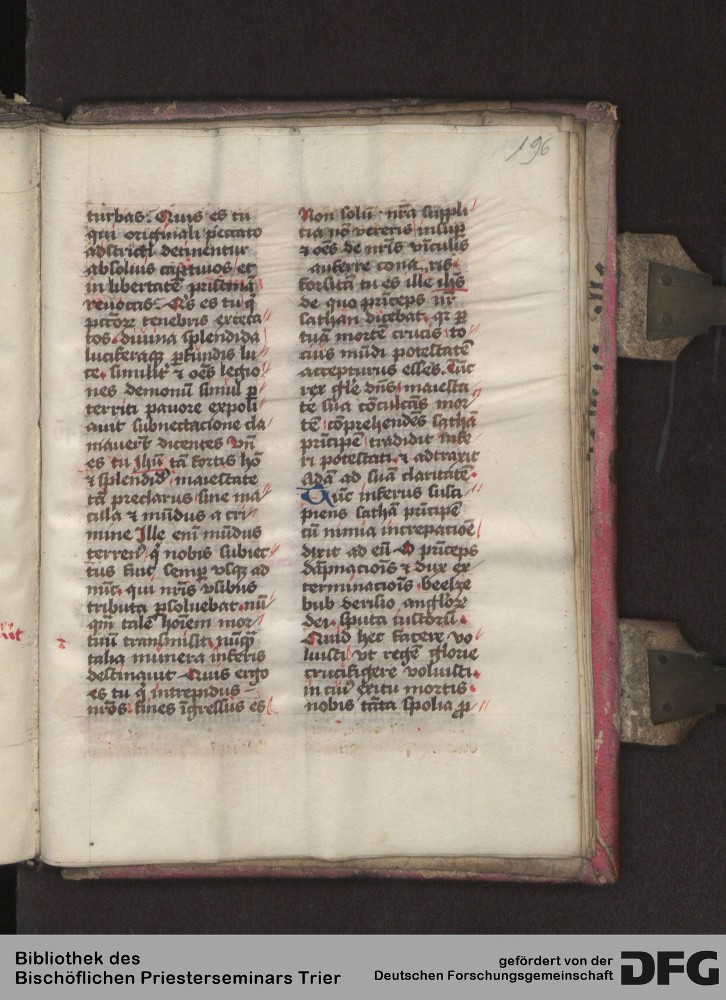 196
turbas. Quis es tu
qui originali peccato
adstricti detinentur
absoluis captiuos et
in libertatē pristinā
reuocas. Qⁱs es tu qͥ
pctoꝝ tenebris exceca
tos diuina splendida
luciferaqꝫ ꝑfundis lu
ce. similit᷑ ⁊ oēs legio
nes demonū simul ꝑ
territi pauore expoli
auit subiectacione cla
mauerūt dicentes Vn̄
es tu ihū tā fortis hō
⁊ splendidꝰ maiestate
tā preclarus sine ma
cula ⁊ mūdus a cri
mine Ille enī mūdus
terrenꝰ qͥ nobis subiec
tus fuit semꝑ vsqꝫ ad
nūc. qui nrīs vsibus
tributa ꝑsoluebat. nū
qͣm talē hoīem mor
tuū transmisit nūqͣ
talia munera inferis
destinauit Quis ergo
es tu qͥ intrepidus
nrōs fines īgressus es
Non solū nrā suppli
tia nō vereris insuꝑ
⁊ oēs de nrīs vīculis
auferre conaris
forsitā tu es ille ihs̄
de quo prīceps nr̄
sathan dicebat. qͥ ꝑ
tuā mortē crucis to
cius mūdi potestatē
accepturus esses. Tūc
rex glīe dn̄s maiesta
te sua cōculcās mor
tē cōprehendēs sathā
prīcipē tradidit infe
ri potestati. ⁊ adtraxit
Adā ad suā claritatē.
Tūc inferus susci
piens sathā prīcipē
cū nimia increpacioē
dixit ad eū O prīceps
dāpnacioīs ⁊ dux ex
terminacioīs beelze
bub derisio angloꝝ
dei sputa iustorū.
Quid hec facere vo
luisti vt regē glorie
crucifigere voluisti.
in cuiꝰ exitu mortis.
nobis tāta spolia ꝓ
Bibliothek des
Bischöflichen Priesterseminars Trier
gefördert von der
Deutschen Forschungsgemeinschaft
DFG